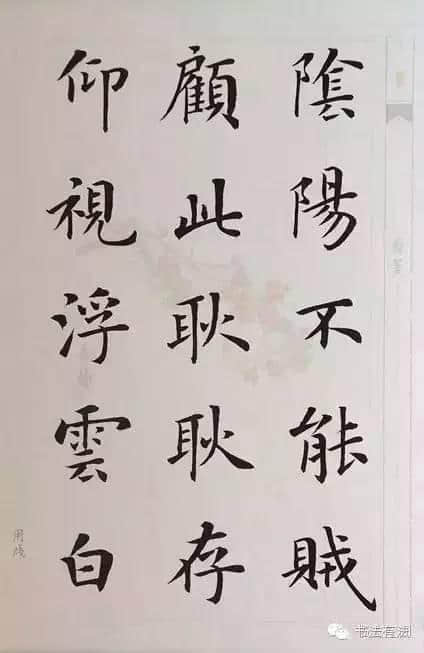 陰陽不能賊
顧此耿耿存
仰視浮雲白
用笺
书法有法